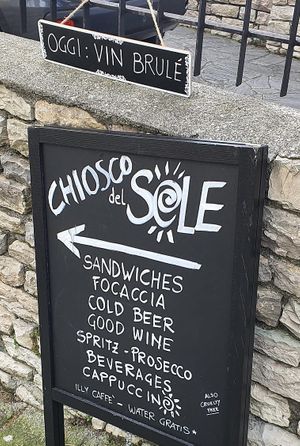 OGGI: VIN BRULÉ
CHIOSCO
del SOLE
SANDWICHES
FOCACCIA
COLD BEER
GOOD WINE
SPRITZ - PROSECCO
BEVERAGES
CAPPUCCINO
ILLY CAFFE' - WATER GRATIS *
ALSO
CRUELTY
FREE